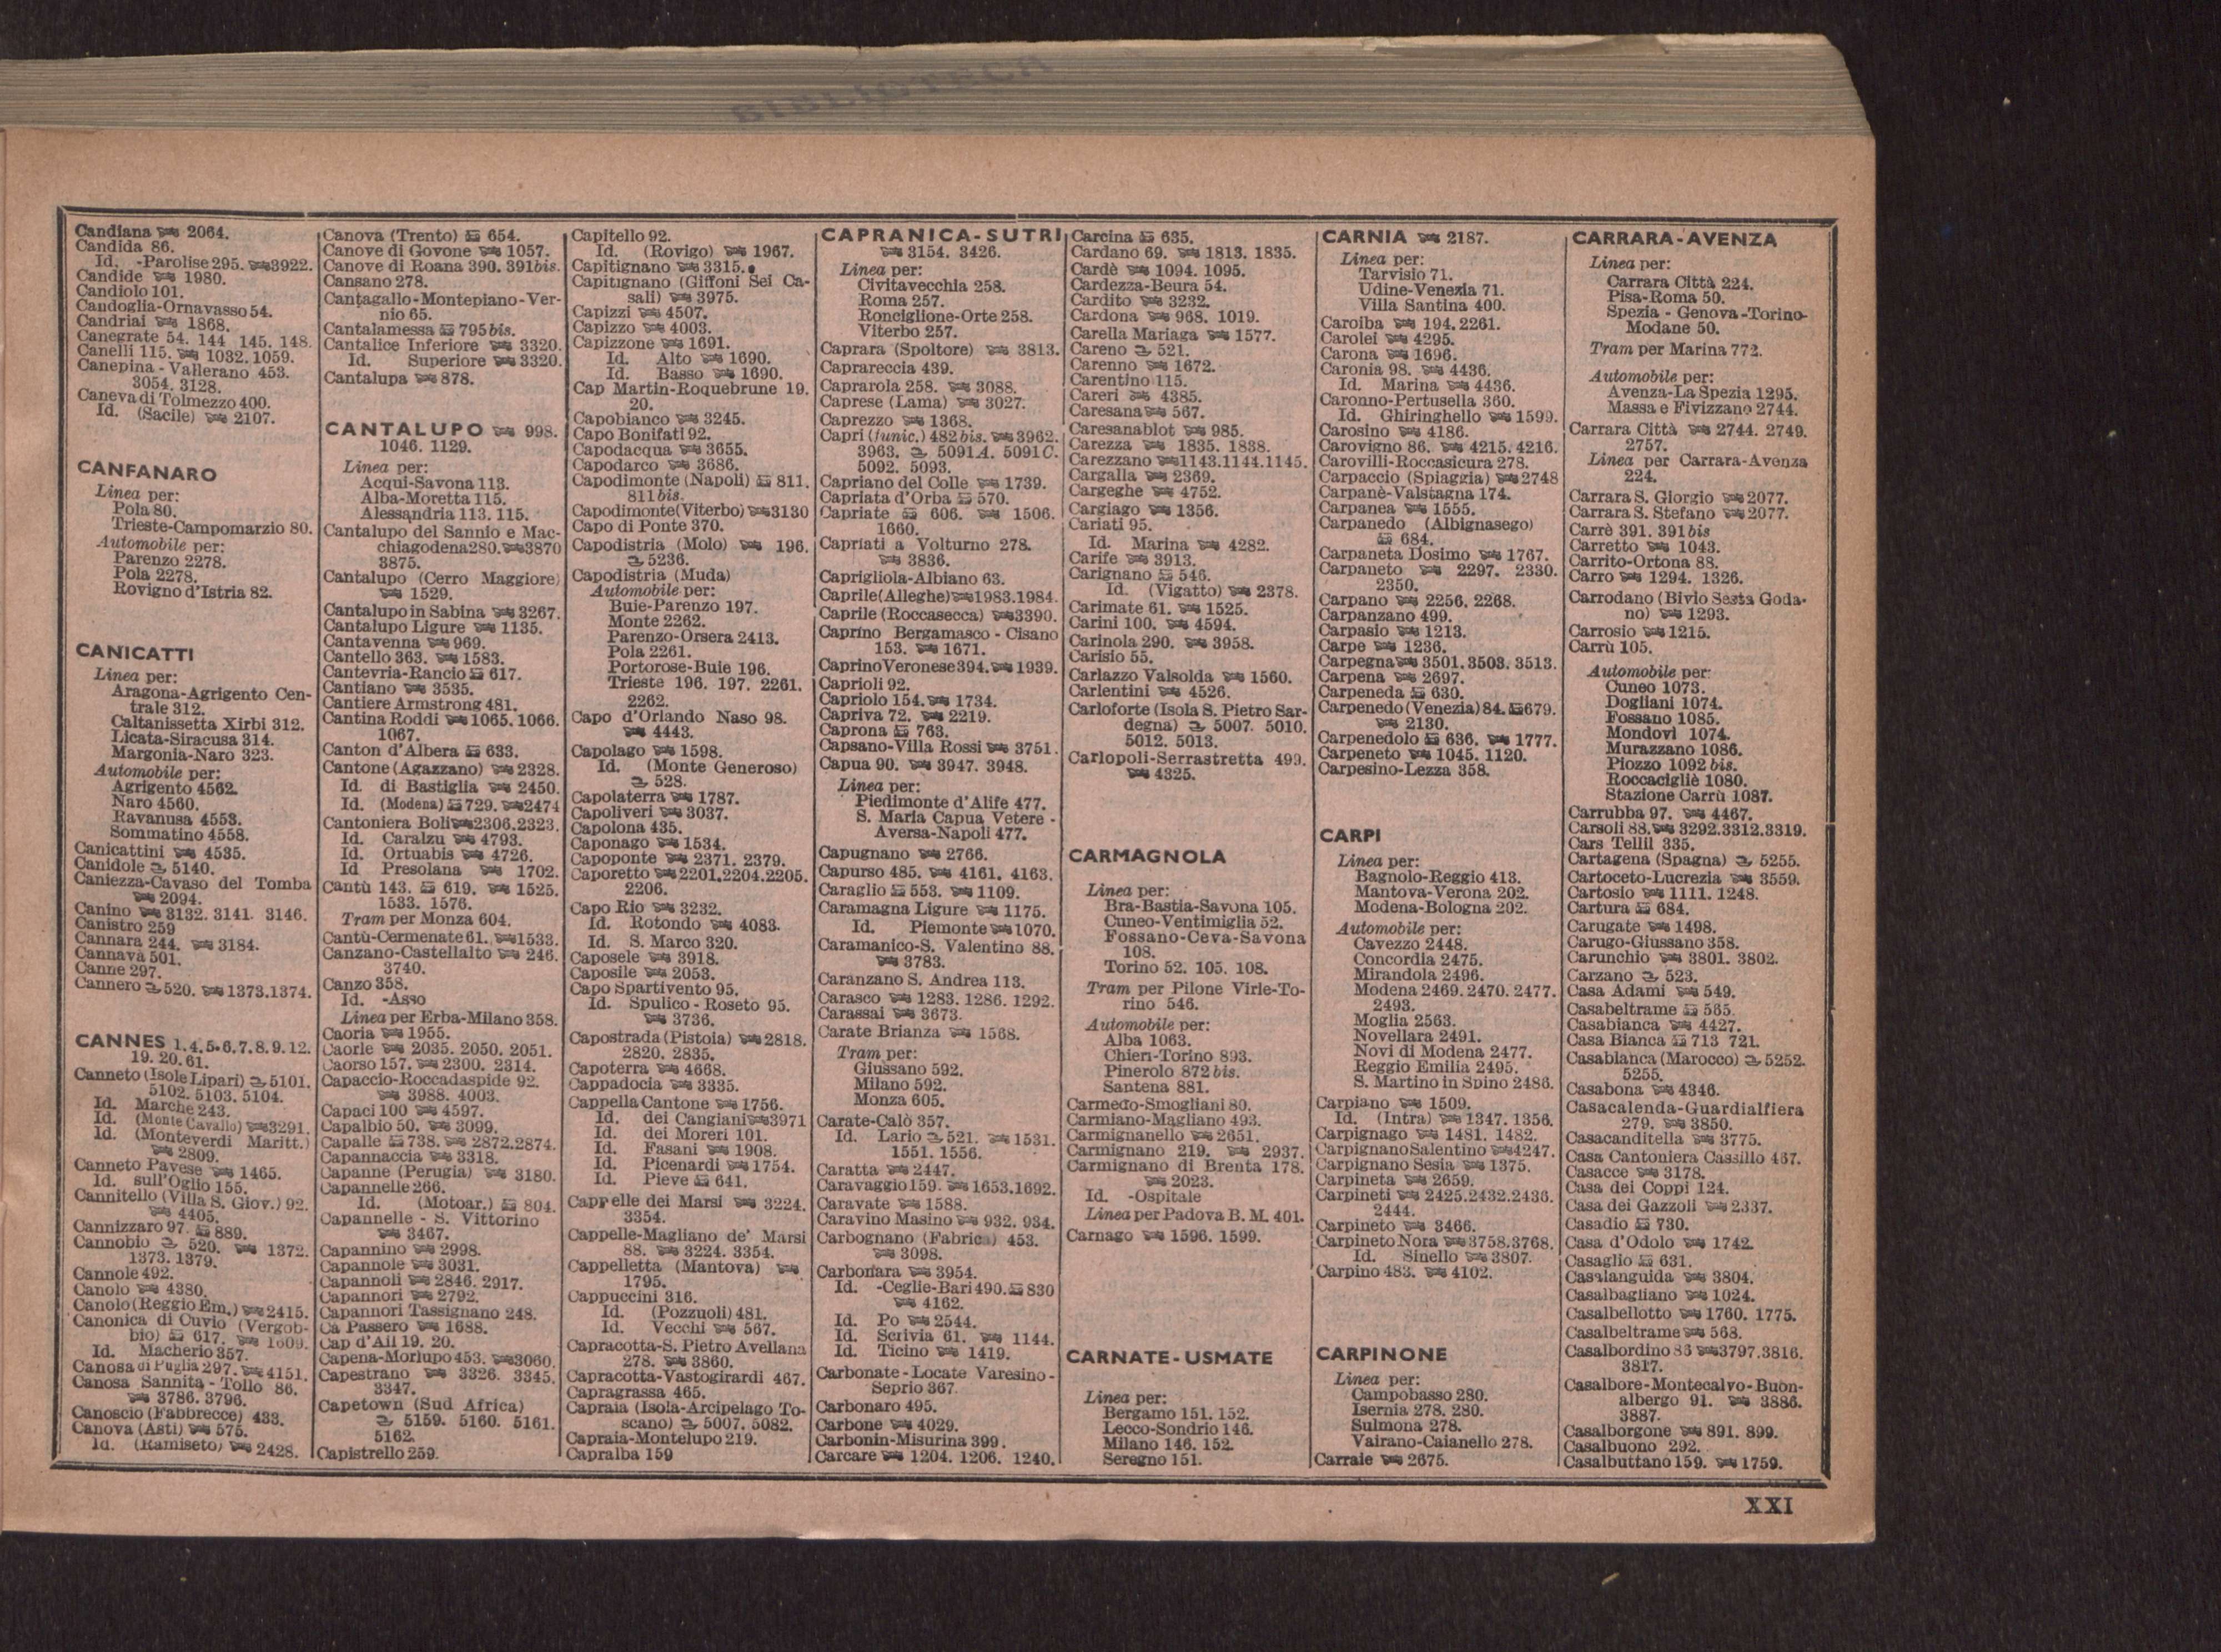 BIBLIOTECA
Candiana 2064.
Candida 86.
Id. -Parolise 295. 3922.
Candide 1980.
Candiolo 101.
Candoglia-Ornavasso 54.
Candriai 1868.
Canegrate 54. 144 145. 148.
Canelli 115. 1032. 1059.
Canepina - Vallerano 453.
3054. 3128.
Caneva di Tolmezzo 400.
Id. (Sacile) 2107.
CANFANARO
Linea per:
Pola 80.
Trieste-Campomarzio 80.
Automobile per:
Parenzo 2278.
Pola 2278.
Rovigno d'Istria 82.
CANICATTI
Linea per:
Aragona-Agrigento Cen-
trale 312.
Caltanissetta Xirbi 312.
Licata-Siracusa 314.
Margonia-Naro 323.
Automobile per:
Agrigento 4562.
Naro 4560.
Ravanusa 4553.
Sommatino 4558.
Canicattini 4535.
Canidole 5140.
Caniezza-Cavaso del Tomba
2094.
Canino 3132. 3141. 3146.
Canistro 259
Cannara 244. 3184.
Cannavà 501.
Canne 297.
Cannero 520. 1373.1374.
CANNES 1.4.5.6.7.8.9.12.
19. 20. 61.
Canneto (Isole Lipari) 5101.
5102. 5103. 5104.
Id. Marche 243.
Id. (Monte Cavallo) 3291.
Id. (Monteverdi Maritt.)
2809.
Canneto Pavese 1465.
Id. sull'Oglio 155.
Cannitello (Villa S. Giov.) 92.
4405.
Cannizzaro 97. 889.
Cannobio 520. 1372.
1373. 1379.
Cannole 492.
Canolo 4380.
Canolo (Reggio Em.) 2415.
Canonica di Cuvio (Vergob-
bio) 617. 1609.
Id. Macherio 357.
Canosa di Puglia 297. 4151.
Canosa Sannita - Tollo 86.
3786. 3796.
Canoscio (Fabbrecce) 433.
Canova (Asti) 575.
Id. (Ramiseto) 2428.
Canova (Trento) 654.
Canove di Govone 1057.
Canove di Roana 390. 391bis.
Cansano 278.
Cantagallo-Montepiano-Ver-
nio 65.
Cantalamessa 795bis.
Cantalice Inferiore 3320.
Id. Superiore 3320.
Cantalupa 878.
CANTALUPO 998.
1046. 1129.
Linea per:
Acqui-Savona 113.
Alba-Moretta 115.
Alessandria 113. 115.
Cantalupo del Sannio e Mac-
chiagodena 280. 3870
3875.
Cantalupo (Cerro Maggiore)
1529.
Cantalupo in Sabina 3267.
Cantalupo Ligure 1135.
Cantavenna 969.
Cantello 363. 1583.
Cantevria-Rancio 617.
Cantiano 3535.
Cantiere Armstrong 481.
Cantina Roddi 1065. 1066.
1067.
Canton d'Albera 633.
Cantone (Agazzano) 2328.
Id. di Bastiglia 2450.
Id. (Modena) 729. 2474
Cantoniera Boli 2306.2323.
Id. Caralzu 4793.
Id. Ortuabis 4726.
Id Presolana 1702.
Cantù 143. 619. 1525.
1533. 1576.
Tram per Monza 604.
Cantù-Cermenate 61. 1533.
Canzano-Castellalto 246.
3740.
Canzo 358.
Id. -Asso
Linea per Erba-Milano 358.
Caoria 1955.
Caorle 2035. 2050. 2051.
Caorso 157. 2300. 2314.
Capaccio-Roccadaspide 92.
3988. 4003.
Capaci 100 4597.
Capalbio 50. 3099.
Capalle 738. 2872.2874.
Capannaccia 3318.
Capanne (Perugia) 3180.
Capannelle 266.
Id. (Motoar.) 804.
Capannelle - S. Vittorino
3467.
Capannino 2998.
Capannole 3031.
Capannoli 2846. 2917.
Capannori 2792.
Capannori Tassignano 248.
Cà Passero 1688.
Cap d'Ail 19. 20.
Capena-Morlupo 453. 3060.
Capestrano 3326. 3345.
3347.
Capetown (Sud Africa)
5159. 5160. 5161.
5162.
Capistrello 259.
Capitello 92.
Id. (Rovigo) 1967.
Capitignano 3315.
Capitignano (Giffoni Sei Ca-
sali) 3975.
Capizzi 4507.
Capizzo 4003.
Capizzone 1691.
Id. Alto 1690.
Id. Basso 1690.
Cap Martin-Roquebrune 19.
20.
Capobianco 3245.
Capo Bonifati 92.
Capodacqua 3655.
Capodarco 3686.
Capodimonte (Napoli) 811.
811bis.
Capodimonte(Viterbo) 3130
Capo di Ponte 370.
Capodistria (Molo) 196.
5236.
Capodistria (Muda)
Automobile per:
Buie-Parenzo 197.
Monte 2262.
Parenzo-Orsera 2413.
Pola 2261.
Portorose-Buie 196.
Trieste 196. 197. 2261.
2262.
Capo d'Orlando Naso 98.
4443.
Capolago 1598.
Id. (Monte Generoso)
528.
Capolaterra 1787.
Capoliveri 3037.
Capolona 435.
Caponago 1534.
Capoponte 2371. 2379.
Caporetto 2201.2204.2205.
2206.
Capo Rio 3232.
Id. Rotondo 4083.
Id. S. Marco 320.
Caposele 3918.
Caposile 2053.
Capo Spartivento 95.
Id. Spulico - Roseto 95.
3736.
Capostrada (Pistoia) 2818.
2820. 2835.
Capoterra 4668.
Cappadocia 3335.
Cappella Cantone 1756.
Id. dei Cangiani 3971
Id. dei Moreri 101.
Id. Fasani 1908.
Id. Picenardi 1754.
Id. Pieve 641.
Cappelle dei Marsi 3224.
3354.
Cappelle-Magliano de' Marsi
88. 3224. 3354.
Cappelletta (Mantova)
1795.
Cappuccini 316.
Id. (Pozzuoli) 481.
Id. Vecchi 567.
Capracotta-S. Pietro Avellana
278. 3860.
Capracotta-Vastogirardi 467.
Capragrassa 465.
Capraia (Isola-Arcipelago To-
scano) 5007. 5082.
Capraia-Montelupo 219.
Capralba 159
CAPRANICA-SUTRI
3154. 3426.
Linea per:
Civitavecchia 258.
Roma 257.
Ronciglione-Orte 258.
Viterbo 257.
Caprara (Spoltore) 3813.
Caprareccia 439.
Caprarola 258. 3088.
Caprese (Lama) 3027.
Caprezzo 1368.
Capri (funic.) 482bis. 3962.
3963. 5091A. 5091C.
5092. 5093.
Capriano del Colle 1739.
Capriata d'Orba 570.
Capriate 606. 1506.
1660.
Capriati a Volturno 278.
3836.
Caprigliola-Albiano 63.
Caprile(Alleghe) 1983.1984.
Caprile (Roccasecca) 3390.
Caprino Bergamasco - Cisano
153. 1671.
Caprino Veronese 394. 1939.
Caprioli 92.
Capriolo 154. 1734.
Capriva 72. 2219.
Caprona 763.
Capsano-Villa Rossi 3751.
Capua 90. 3947. 3948.
Linea per:
Piedimonte d'Alife 477.
S. Maria Capua Vetere -
Aversa-Napoli 477.
Capugnano 2766.
Capurso 485. 4161. 4163.
Caraglio 553. 1109.
Caramagna Ligure 1175.
Id. Piemonte 1070.
Caramanico-S. Valentino 88.
3783.
Caranzano S. Andrea 113.
Carasco 1283. 1286. 1292.
Carassai 3673.
Carate Brianza 1568.
Tram per:
Giussano 592.
Milano 592.
Monza 605.
Carate-Calò 357.
Id. Lario 521. 1531.
1551. 1556.
Caratta 2447.
Caravaggio 159. 1653.1692.
Caravate 1588.
Caravino Masino 932. 934.
Carbognano (Fabrica) 453.
3098.
Carbonara 3954.
Id. -Ceglie-Bari 490. 830
4162.
Id. Po 2544.
Id. Scrivia 61. 1144.
Id. Ticino 1419.
Carbonate - Locate Varesino -
Seprio 367.
Carbonaro 495.
Carbone 4029.
Carbonin-Misurina 399.
Carcare 1204. 1206. 1240.
Carcina 635.
Cardano 69. 1813. 1835.
Cardè 1094. 1095.
Cardezza-Beura 54.
Cardito 3232.
Cardona 968. 1019.
Carella Mariaga 1577.
Careno 521.
Carenno 1672.
Carentino 115.
Careri 4385.
Caresana 567.
Caresanablot 985.
Carezza 1835. 1838.
Carezzano 1143.1144.1145.
Cargalla 2369.
Cargeghe 4752.
Cargiago 1356.
Cariati 95.
Id. Marina 4282.
Carife 3913.
Carignano 546.
Id. (Vigatto) 2378.
Carimate 61. 1525.
Carini 100. 4594.
Carinola 290. 3958.
Carisio 55.
Carlazzo Valsolda 1560.
Carlentini 4526.
Carloforte (Isola S. Pietro Sar-
degna) 5007. 5010.
5012. 5013.
Carlopoli-Serrastretta 499.
4325.
CARMAGNOLA
Linea per:
Bra-Bastia-Savona 105.
Cuneo-Ventimiglia 52.
Fossano-Ceva-Savona
108.
Torino 52. 105. 108.
Tram per Pilone Virle-To-
rino 546.
Automobile per:
Alba 1063.
Chieri-Torino 893.
Pinerolo 872bis.
Santena 881.
Carmedo-Smogliani 80.
Carmiano-Magliano 493.
Carmignanello 2651.
Carmignano 219. 2937.
Carmignano di Brenta 178.
2023.
Id. -Ospitale
Linea per Padova B. M. 401.
Carnago 1596. 1599.
CARNATE-USMATE
Linea per:
Bergamo 151. 152.
Lecco-Sondrio 146.
Milano 146. 152.
Seregno 151.
CARNIA 2187.
Linea per:
Tarvisio 71.
Udine-Venezia 71.
Villa Santina 400.
Caroiba 194. 2261.
Carolei 4295.
Carona 1696.
Caronia 98. 4436.
Id. Marina 4436.
Caronno-Pertusella 360.
Id. Ghiringhello 1599.
Carosino 4186.
Carovigno 86. 4215. 4216.
Carovilli-Roccasicura 278.
Carpaccio (Spiaggia) 2748
Carpanè-Valstagna 174.
Carpanea 1555.
Carpanedo (Albignasego)
684.
Carpaneta Dosimo 1767.
Carpaneto 2297. 2330.
2350.
Carpano 2256. 2268.
Carpanzano 499.
Carpasio 1213.
Carpe 1236.
Carpegna 3501.3503. 3513.
Carpena 2697.
Carpeneda 630.
Carpenedo (Venezia) 84. 679.
2130.
Carpenedolo 636. 1777.
Carpeneto 1045. 1120.
Carpesino-Lezza 358.
CARPI
Linea per:
Bagnolo-Reggio 413.
Mantova-Verona 202.
Modena-Bologna 202.
Automobile per:
Cavezzo 2448.
Concordia 2475.
Mirandola 2496.
Modena 2469. 2470. 2477.
2493.
Moglia 2563.
Novellara 2491.
Novi di Modena 2477.
Reggio Emilia 2495.
S. Martino in Spino 2486.
Carpiano 1509.
Id. (Intra) 1347. 1356.
Carpignago 1481. 1482.
Carpignano Salentino 4247.
Carpignano Sesia 1375.
Carpineta 2659.
Carpineti 2425.2432.2436.
2444.
Carpineto 3466.
Carpineto Nora 3758.3768.
Id. Sinello 3807.
Carpino 483. 4102.
CARPINONE
Linea per:
Campobasso 280.
Isernia 278. 280.
Sulmona 278.
Vairano-Caianello 278.
Carraie 2675.
CARRARA-AVENZA
Linea per:
Carrara Città 224.
Pisa-Roma 50.
Spezia - Genova-Torino-
Modane 50.
Tram per Marina 772.
Automobile per:
Avenza-La Spezia 1295.
Massa e Fivizzano 2744.
Carrara Città 2744. 2749.
2757.
Linea per Carrara-Avenza
224.
Carrara S. Giorgio 2077.
Carrara S. Stefano 2077.
Carrè 391. 391bis
Carretto 1043.
Carrito-Ortona 88.
Carro 1294. 1326.
Carrodano (Bivio Sesta Goda-
no) 1293.
Carrosio 1215.
Carrù 105.
Automobile per:
Cuneo 1073.
Dogliani 1074.
Fossano 1085.
Mondovì 1074.
Murazzano 1086.
Piozzo 1092bis.
Roccacigliè 1080.
Stazione Carrù 1087.
Carrubba 97. 4467.
Carsoli 88. 3292.3312.3319.
Cars Tellil 335.
Cartagena (Spagna) 5255.
Cartoceto-Lucrezia 3559.
Cartosio 1111. 1248.
Cartura 684.
Carugate 1498.
Carugo-Giussano 358.
Carunchio 3801. 3802.
Carzano 523.
Casa Adami 549.
Casabeltrame 565.
Casabianca 4427.
Casa Bianca 713 721.
Casablanca (Marocco) 5252.
5255.
Casabona 4346.
Casacalenda-Guardialfiera
279. 3850.
Casacanditella 3775.
Casa Cantoniera Cassillo 467.
Casacce 3178.
Casa dei Coppi 124.
Casa dei Gazzoli 2337.
Casadio 730.
Casa d'Odolo 1742.
Casaglio 631.
Casalanguida 3804.
Casalbagliano 1024.
Casalbellotto 1760. 1775.
Casalbeltrame 568.
Casalbordino 86 3797.3816.
3817.
Casalbore-Montecalvo-Buon-
albergo 91. 3886.
3887.
Casalborgone 891. 899.
Casalbuono 292.
Casalbuttano 159. 1759.
XXI